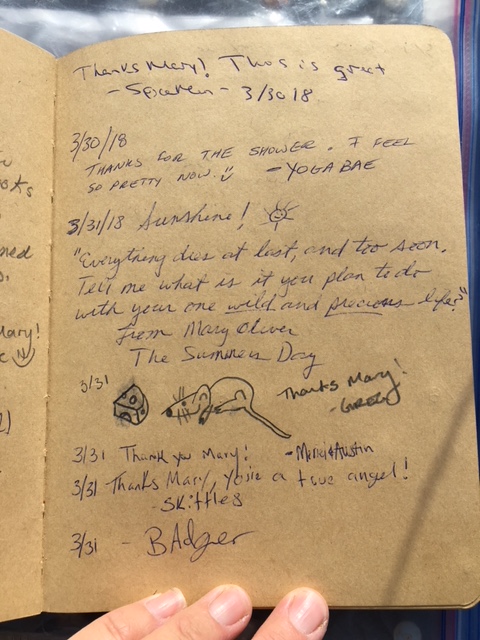 Thanks Mary! This is great
- - 3/30 18
3/30/18
THANKS FOR THE SHOWER. I FEEL
SO PRETTY NOW. - YOGA BAE
3/31/18 Sunshine!
"Everything dies at last, and too soon.
Tell me what is it you plan to do
with your one wild and precious life?"
from Mary Oliver
The Summers Day
3/31
Thanks Mary!
3/31 Thank you Mary! - & Austin
3/31 Thanks Mary, You're a true angel!
- Skittles
3/31 - BAdger
ots
ned
Mary!